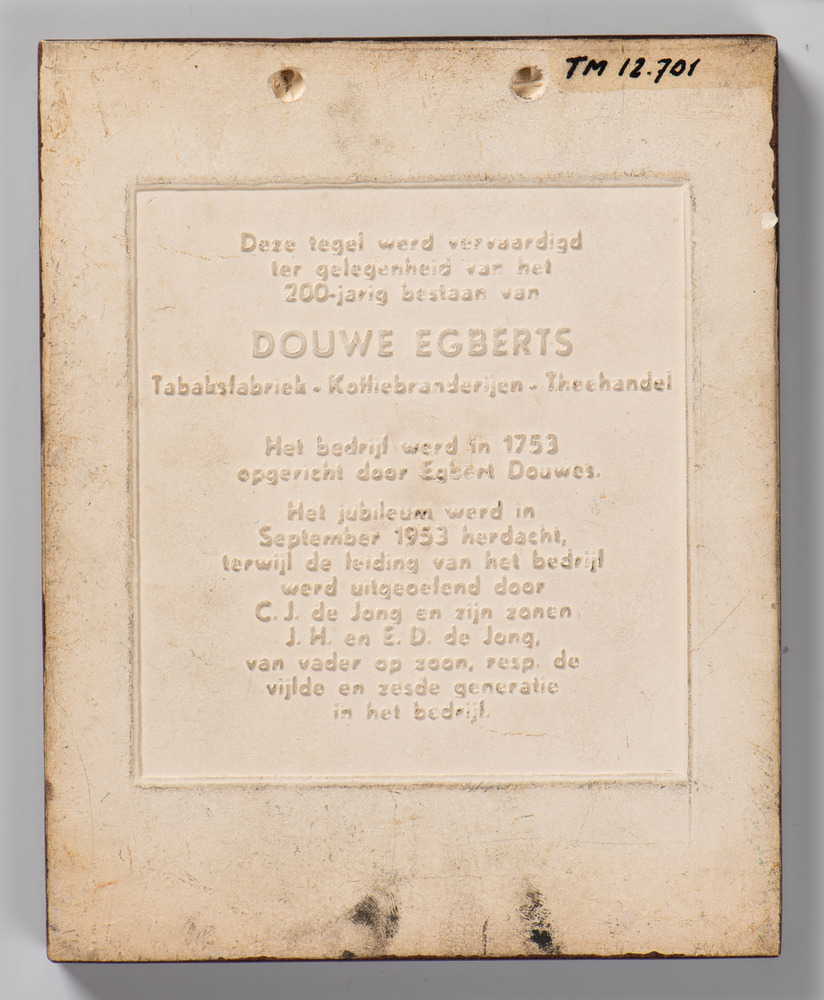 TM 12.701
Deze tegel werd vervaardigd
ter gelegenheid van het
200-jarig bestaan van
DOUWE EGBERTS
Tabaksfabriek - Koffiebranderijen - Theehandel
Het bedrijf werd in 1753
opgericht door Egbert Douwes.
Het jubileum werd in
September 1953 herdacht,
terwijl de leiding van het bedrijf
werd uitgeoefend door
C. J. de Jong en zijn zonen
J. H. en E. D. de Jong,
van vader op zoon, resp. de
vijfde en zesde generatie
in het bedrijf.